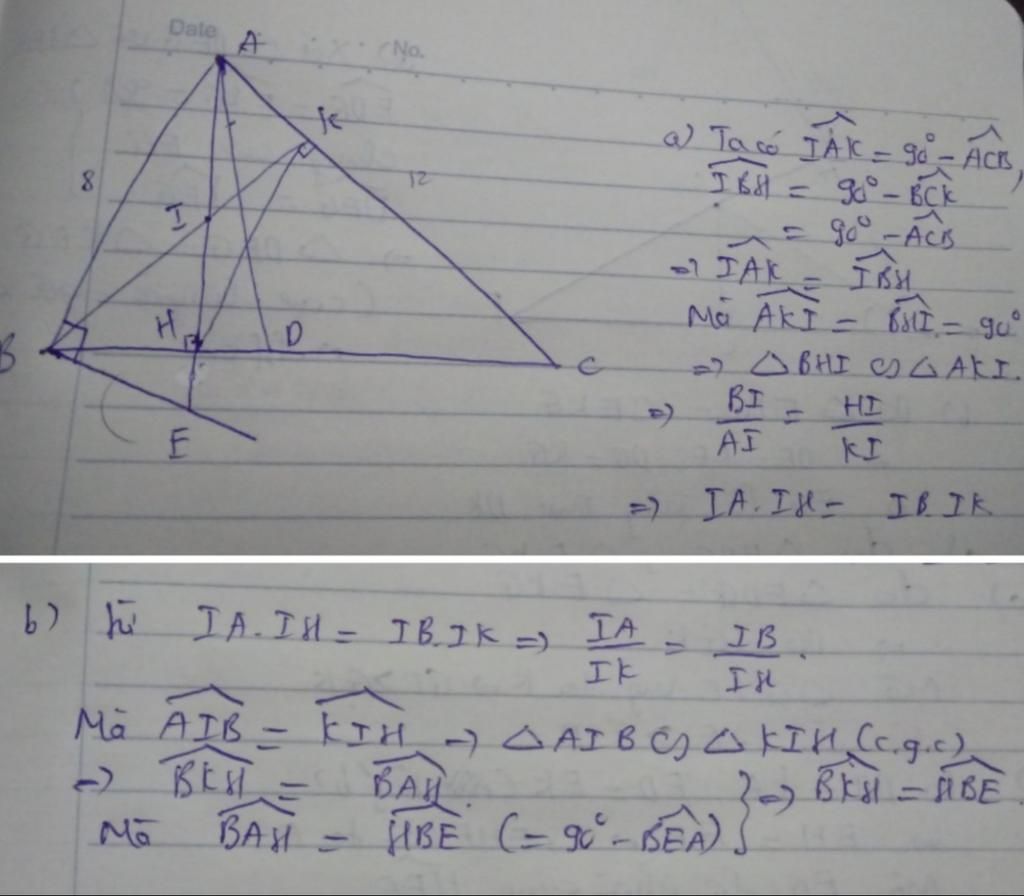 Date No.
A
K
8
12
I
B
H
D
C
E
a) Ta có \widehat{IAK} = 90° - \widehat{ACB},
\widehat{IBH} = 90° - \widehat{BCK}
= 90° - \widehat{ACB}
=> \widehat{IAK} = \widehat{IBH}
Mà \widehat{AKI} = \widehat{BHI} = 90°
=> △BHI ∽ △AKI.
=> \frac{BI}{AI} = \frac{HI}{KI}
=> IA.IH = IB.IK
b) Từ IA.IH = IB.IK => \frac{IA}{IK} = \frac{IB}{IH}.
Mà \widehat{AIB} = \widehat{KIH} => △AIB ∽ △KIH (c.g.c)
=> \widehat{BKH} = \widehat{BAH}.
Mà \widehat{BAH} = \widehat{HBE} (= 90° - \widehat{BEA}) } => \widehat{BKH} = \widehat{HBE}.